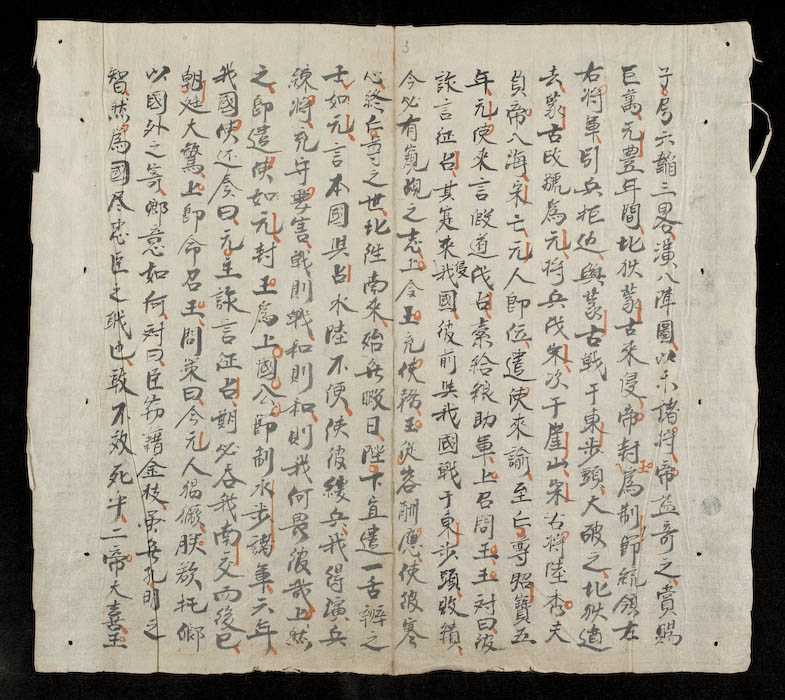 子房六韜三畧演八陣圖以示諸將帝益奇之賞賜
巨萬元豊年間北狄蒙古來侵帝封王爲制節統領左
右將軍引兵拒边與蒙古戰于東步頭大破之北狄遁
去蒙古改號爲元將兵伐宋次于崖山宋右將陸秀夫
負帝入海宋亡元人即位遣使來諭至仁尊昭寶五
年元使來言假道伐占索給粮助軍上召問王王對曰彼
詠言征占其寔來侵我國彼前與我國戰于東步頭敗績
今必有窺覘之志上令王充使務王從容酬應使彼寒
心終仁尊之世北陲南來殆無暇日陛下宜遣一舌辨之
士如元言本國與占水陸不便使彼緩兵我得演兵
練將充守要害戰則戰和則和則我何畏彼哉上然
之即遣使如元封王爲上國公即制水步諸軍六年
我國使还奏曰元主詠言征占朝必吞我南交而後已
朝廷大驚上即命召王問策曰今元人猖獗朕欲托卿
以國外之寄卿意如何對曰臣茍藉金枝虽無孔明之
智然爲國尽忠臣之戝也敢不效死乎二帝大喜王